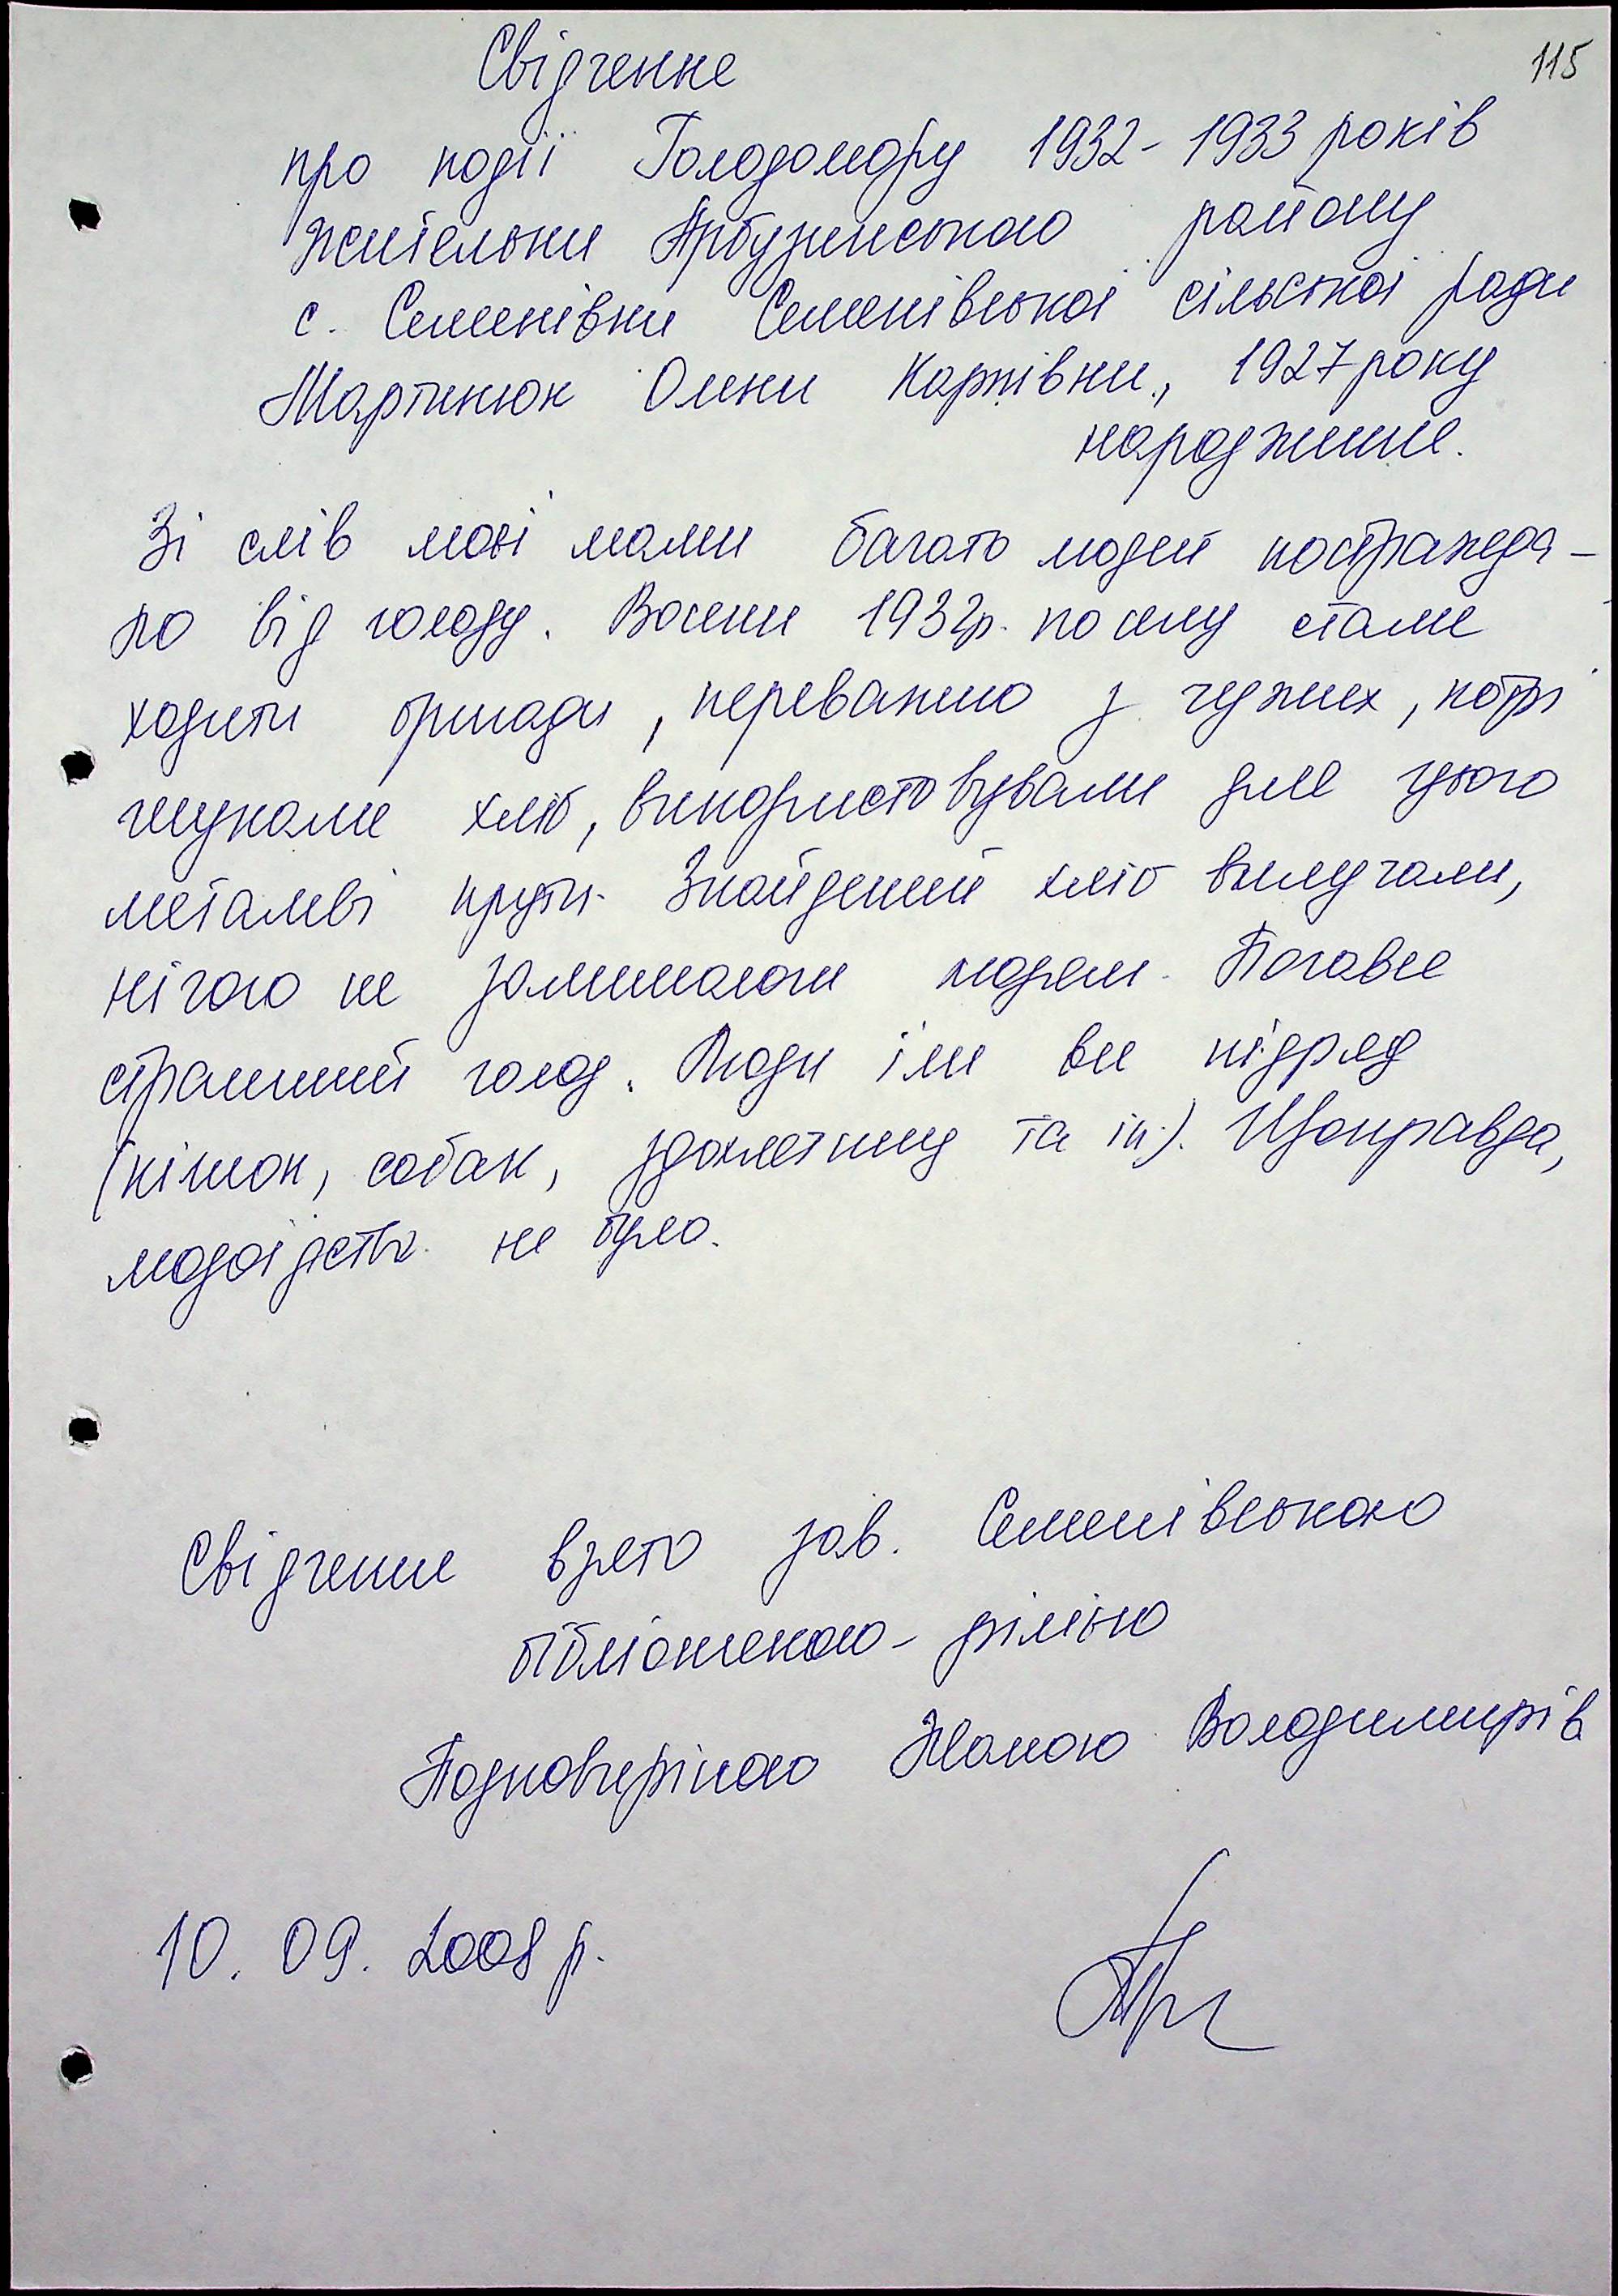 115
Свідчення
про події Голодомору 1932-1933 років
жительки Арбузинського району
с. Семенівки Семенівської сільської ради
Мартинюк Олени Карпівни, 1927 року
народження.
Зі слів моєї мами багато людей постражда-
ло від голоду. Восени 1932р. по селу стали
ходити бригади, переважно з чужих, котрі
шукали хліб, використовували для цього
металеві прути. Знайдений хліб вилучали,
нічого не залишалося людям. Почався
страшний голод. Люди їли все підряд
(кішок, собак, здохлятину та ін.). Щоправда,
людоїдства не було.
Свідчення взято зав. Семенівською
бібліотекою-філією
Жанною Володимирів
10.09.2008 р.